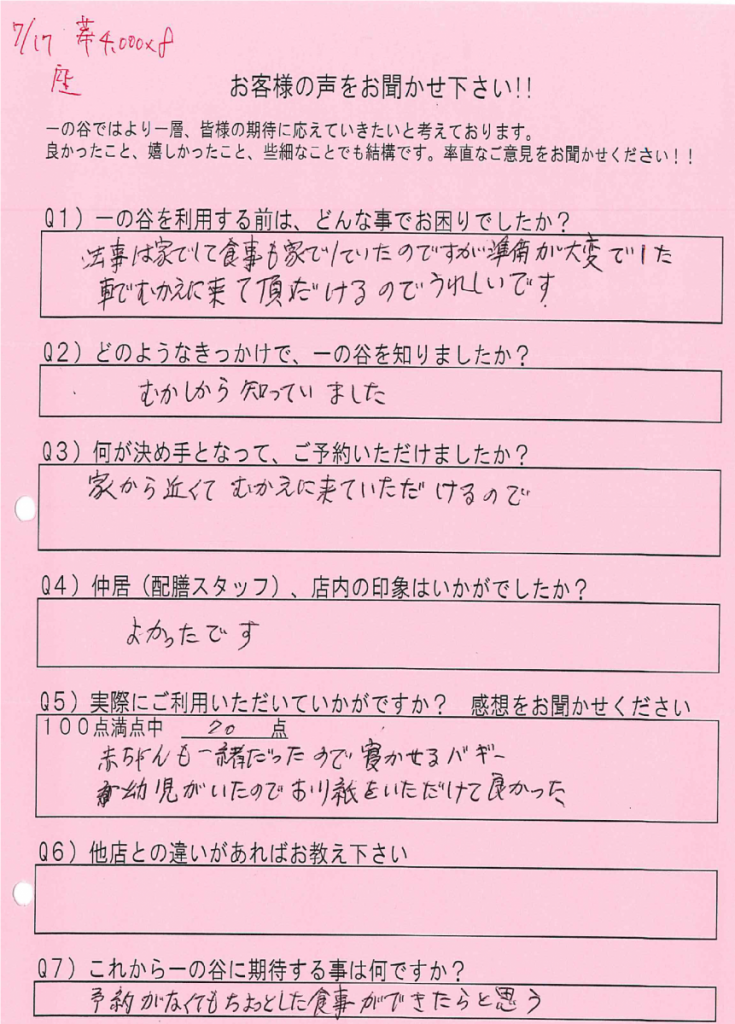 7/17 4,000×8
座
お客様の声をお聞かせ下さい!!
一の谷ではより一層、皆様の期待に応えていきたいと考えております。
良かったこと、嬉しかったこと、些細なことでも結構です。率直なご意見をお聞かせください!!
Q1)一の谷を利用する前は、どんな事でお困りでしたか?
法事は家でして食事も家でしていたのですが準備が大変でした
車でむかえに来て頂だけるのでうれしいです
Q2)どのようなきっかけで、一の谷を知りましたか?
むかしから知っていました
Q3)何が決め手となって、ご予約いただけましたか?
家から近くてむかえに来ていただけるので
Q4)仲居(配膳スタッフ)、店内の印象はいかがでしたか?
よかったです
Q5)実際にご利用いただいていかがですか? 感想をお聞かせください
100点満点中 点
赤ちゃんも一緒だったので寝かせるバギー
幼児がいたのでおり紙をいただけて良かった
Q6)他店との違いがあればお教え下さい
Q7)これから一の谷に期待する事は何ですか?
予約がなくてもちょっとした食事ができたらと思う